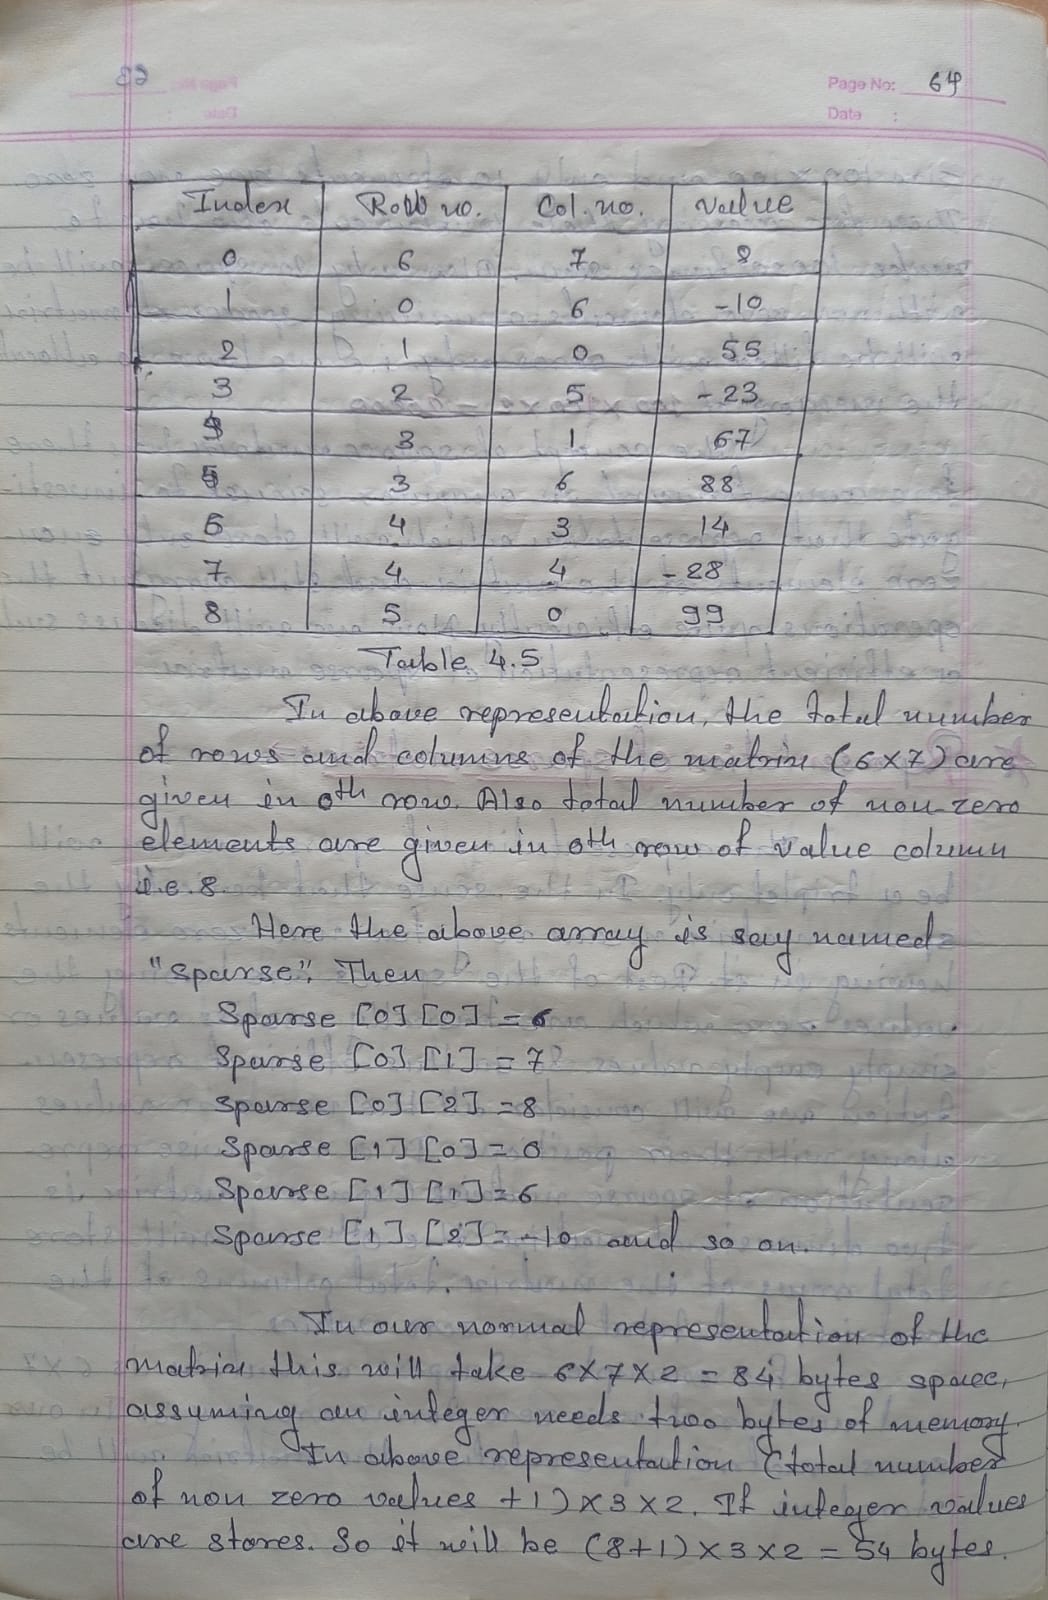 Page No: 64
Date :
Index Row no. Col. no. value
0 6 7 8
1 0 6 -10
2 1 0 55
3 2 5 -23
4 3 1 67
5 3 6 88
6 4 3 14
7 4 4 -28
8 5 0 99
Table 4.5
In above representation, the total number
of rows and columns of the matrix (6x7) are
given in 0th row. Also total number of non-zero
elements are given in 0th row of value column
i.e. 8.
Here the above array is say named
"sparse". Then
Sparse [0] [0] = 6
Sparse [0] [1] = 7
Sparse [0] [2] = 8
Sparse [1] [0] = 0
Sparse [1] [1] = 6
Sparse [1] [2] = -10 and so on.
In our normal representation of the
matrix this will take 6x7x2 = 84 bytes space,
assuming an integer needs two bytes of memory.
In above representation (total number
of non zero values +1) x 3 x 2. If integer values
are stores. So it will be (8+1) x 3 x 2 = 54 bytes.